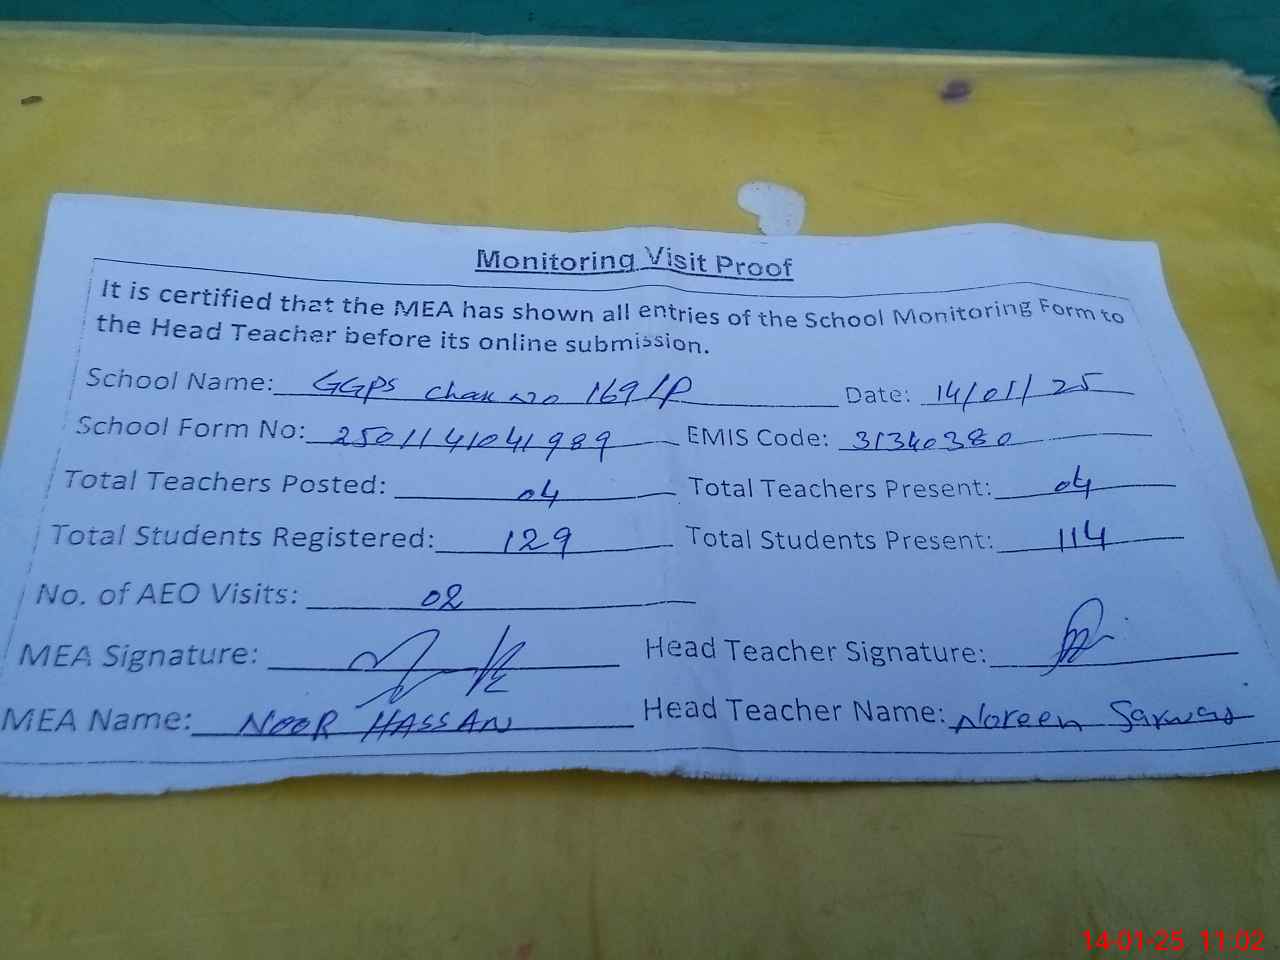 Monitoring Visit Proof
It is certified that the MEA has shown all entries of the School Monitoring Form to
the Head Teacher before its online submission.
School Name: GGPS Chak No 169/P Date: 14/01/25
School Form No: 2501141041989 EMIS Code: 31340380
Total Teachers Posted: 04 Total Teachers Present: 04
Total Students Registered: 129 Total Students Present: 114
No. of AEO Visits: 02
MEA Signature: Head Teacher Signature:
MEA Name: NOOR HASSAN Head Teacher Name: Noreen Sarwar
14-01-25 11:02